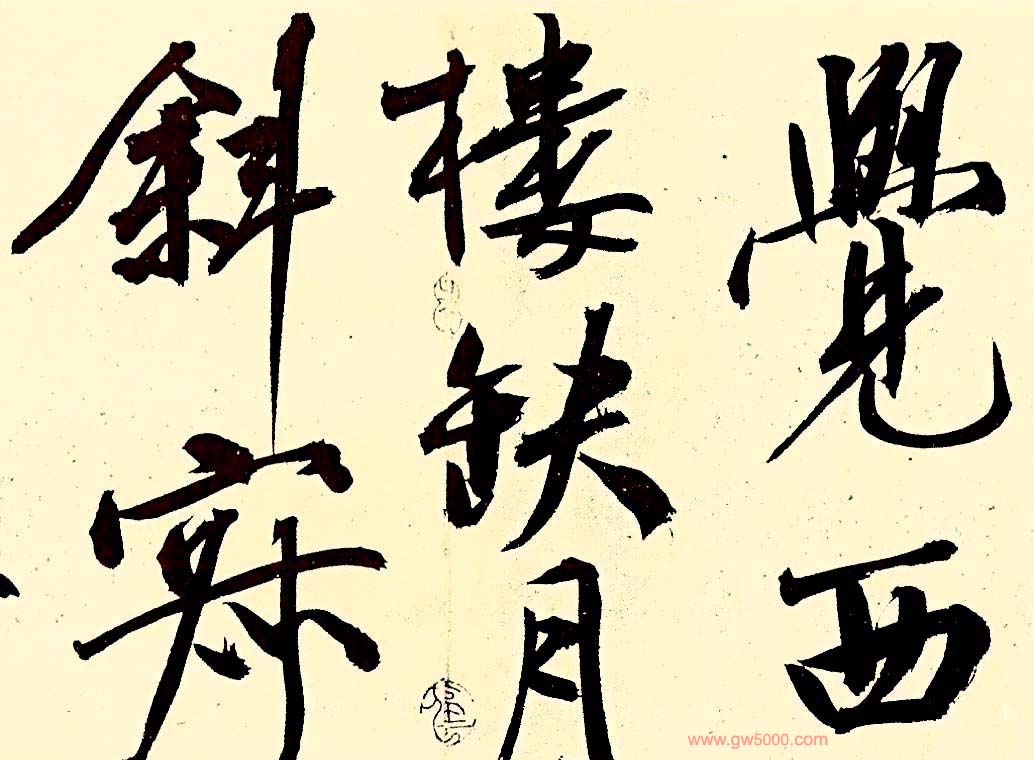 覺西
樓缺月
斜寂
www.gw5000.com